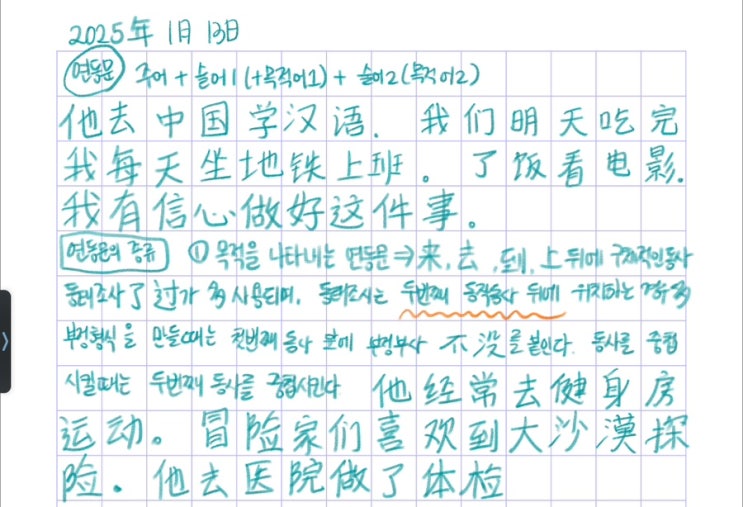 2025年 1月 13日
연동문 주어 + 술어1 (+목적어1) + 술어2(목적어2)
他去中国学汉语. 我们明天吃完
我每天坐地铁上班。了饭看电影.
我有信心做好这件事。
연동문의 종류 ① 목적을 나타내는 연동문 ⇒ 来, 去, 到, 上 뒤에 구체적인 동사
동태조사 了 过가 多 사용되며, 동태조사는 두번째 동작동사 뒤에 위치하는 경우 多
부정형식을 만들때는 첫번째 동사 앞에 부정부사 不 没를 붙인다. 동사를 중첩
시킬때는 두번째 동사를 중첩시킨다 他经常去健身房
运动。冒险家们喜欢到大沙漠探
险. 他去医院做了体检